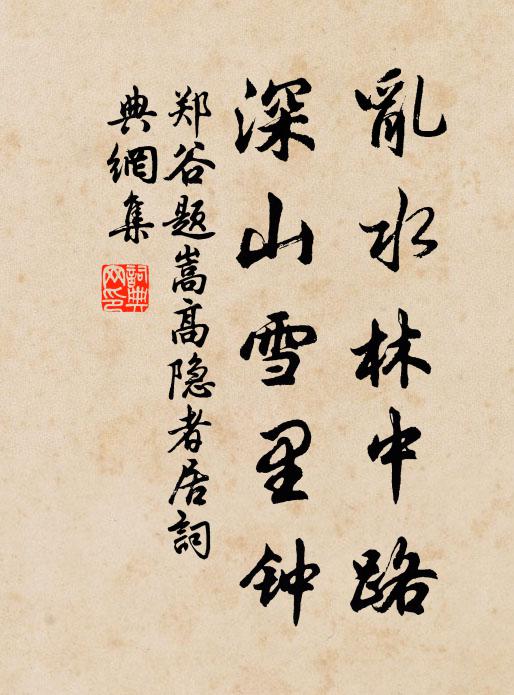 亂水林中路
深山雪里钟
郑谷题嵩高隐者居詞
典網集
詞典网印